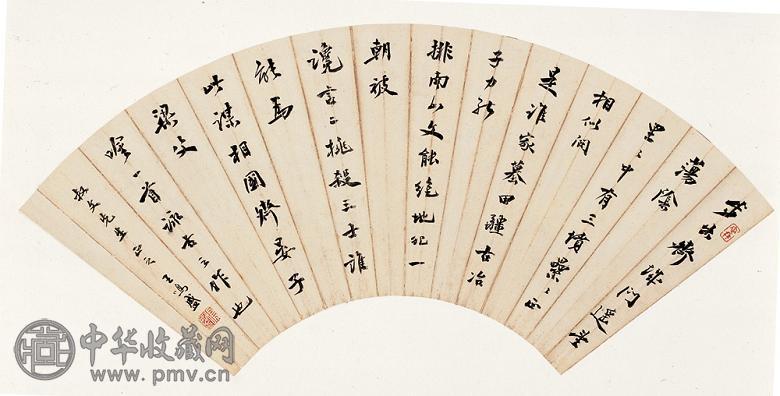 步出齊城門遥望
蕩陰
里〻中有三墳纍〻正
相似問
是誰家墓田疆古冶
子力能
排南山文能絶地紀一
朝被
讒言二桃殺三士誰
能爲
此謀相國齊晏子
梁父
唫一首詠古之作也
叔文先生正 王鳴盛
中华收藏网
www.pmv.cn